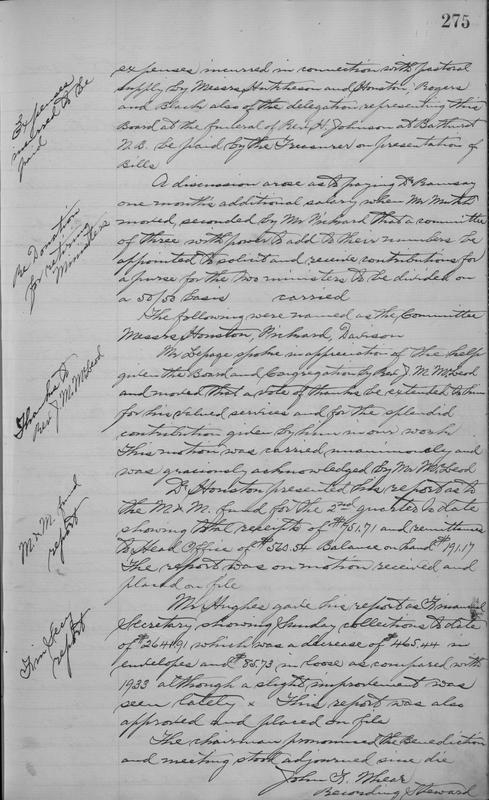 275
Expenses
incurred to be
paid
expenses incurred in connection with pastoral
supply by Messrs Hutcheson and Houston, Rogers
and Black also of the delegation representing this
Board at the funeral of Rev. H. Johnson at Bathurst
N.B. be paid by the Treasurer on presentation of
Bills
Re Donation
for retiring
Ministers
A discussion arose as to paying Dr Ramsay
one month's additional salary when Mr
moved, seconded by Mr Prichard that a committee
of three with power to add to their numbers be
appointed to solicit and receive contributions for
a purse for the two ministers to be divided on
a 50/50 basis carried
The following were named as the Committee
Messrs Houston, Prichard, Davison
Thanks to
Rev. J. M. McLeod
Mr Lepage spoke in appreciation of the help
given the Board and Congregation by Rev. J. M. McLeod
and moved that a vote of thanks be extended to him
for his valued services and for the splendid
contribution given by him in our work
This motion was carried unanimously and
was graciously acknowledged by Mr McLeod
M. & M. fund
report
Dr Houston presented his report as to
the M. & M. fund for the 2nd quarter to date
showing total receipts of $751.71 and remittances
to Head Office of $560.54 Balance on hand $191.17
The report was on motion received and
placed on file
Fin Secy
report
Mr Hughes gave his report as Financial
Secretary, showing Sunday collections to date
of $2641.91 which was a decrease of $465.44 in
envelopes and $85.73 in loose as compared with
1933 although a slight improvement was
seen lately x This report was also
approved and placed on file
The chairman pronounced the Benediction
and meeting stood adjourned since die
John F. Whear
Recording Steward